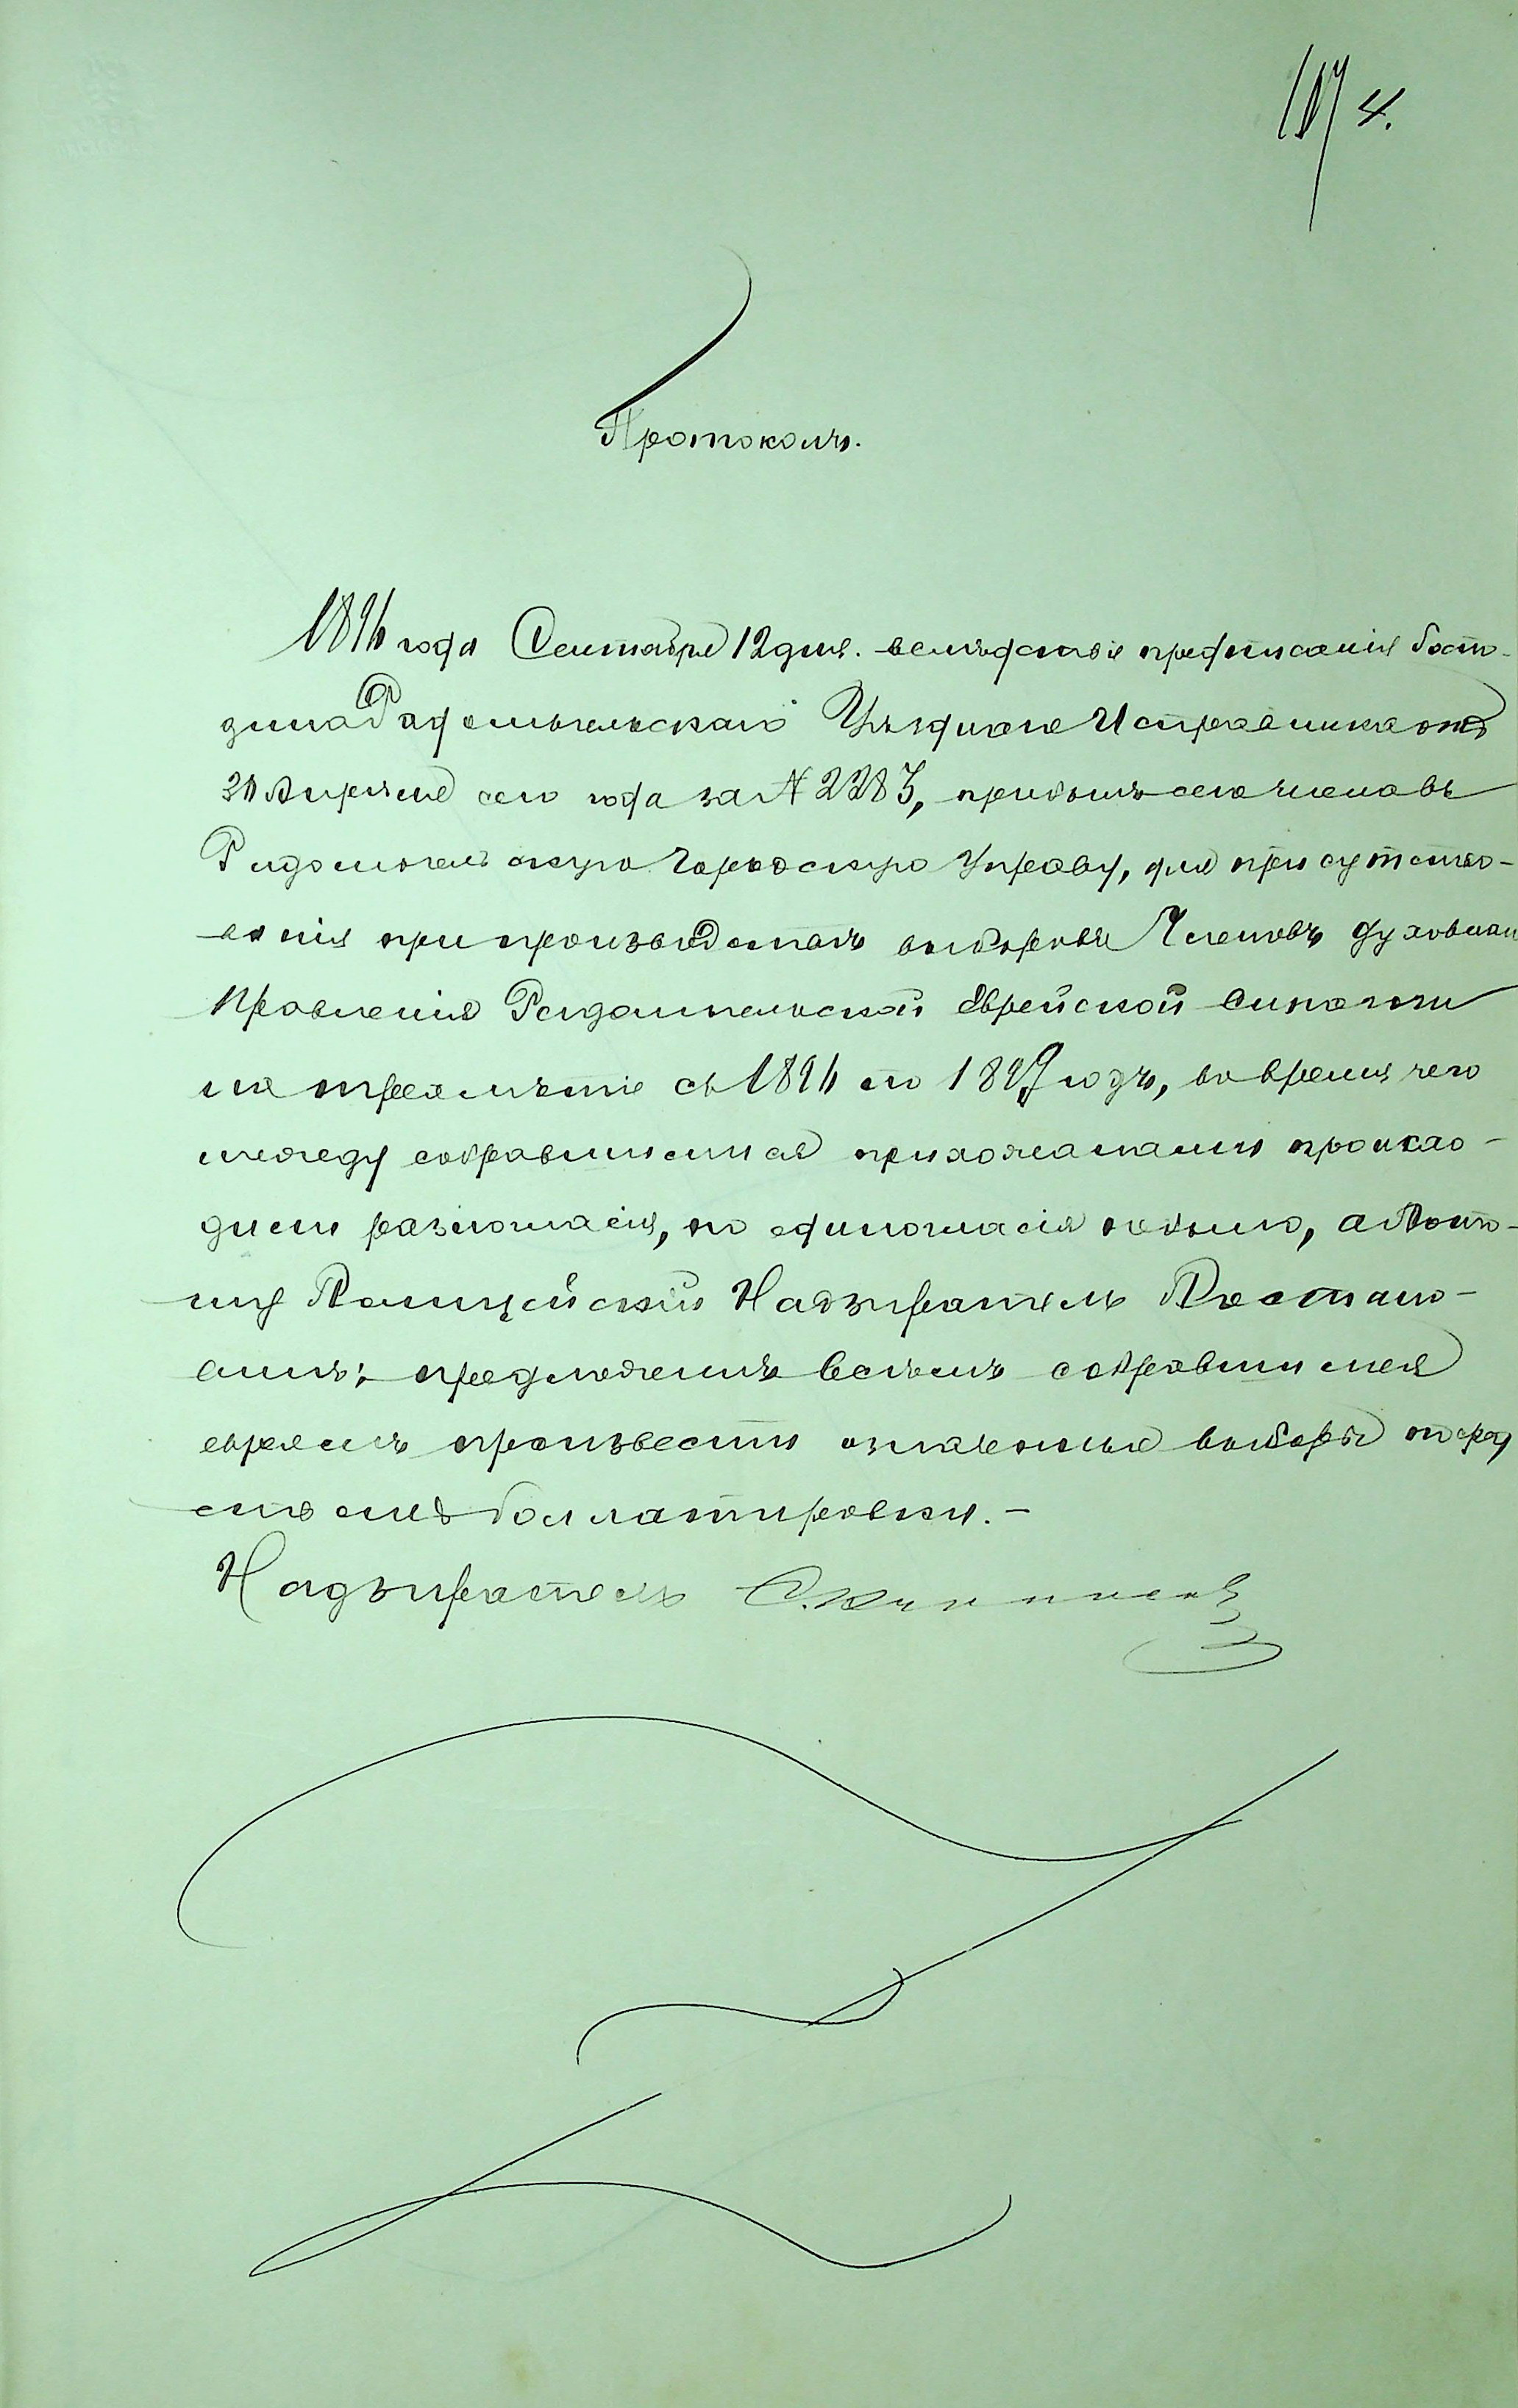 4.
Протоколъ.
1894 года Сентября 12 дня. вслѣдствіе предписанія Госпо-
дина Радомысльскаго Уѣзднаго Исправника отъ
Апрѣля сего года за № 2283, прибылъ сего числа въ
Радомысльскую Городскую Управу, для присутство-
ванія при производствѣ выборовъ Членовъ духовнаго
Правленія Радомысльской Еврейской Синагоги
на трехлѣтіе съ 1894 по 1897 годъ, во время чего
между собравшимися прихожанами происхо-
дили разногласія, но единогласія не было, а потому
Полицейскій Надзиратель Постано-
вилъ: предложить всѣмъ собравшимся
евреямъ произвести означенные выборы посред
ствомъ баллатировки.-
Надзиратель